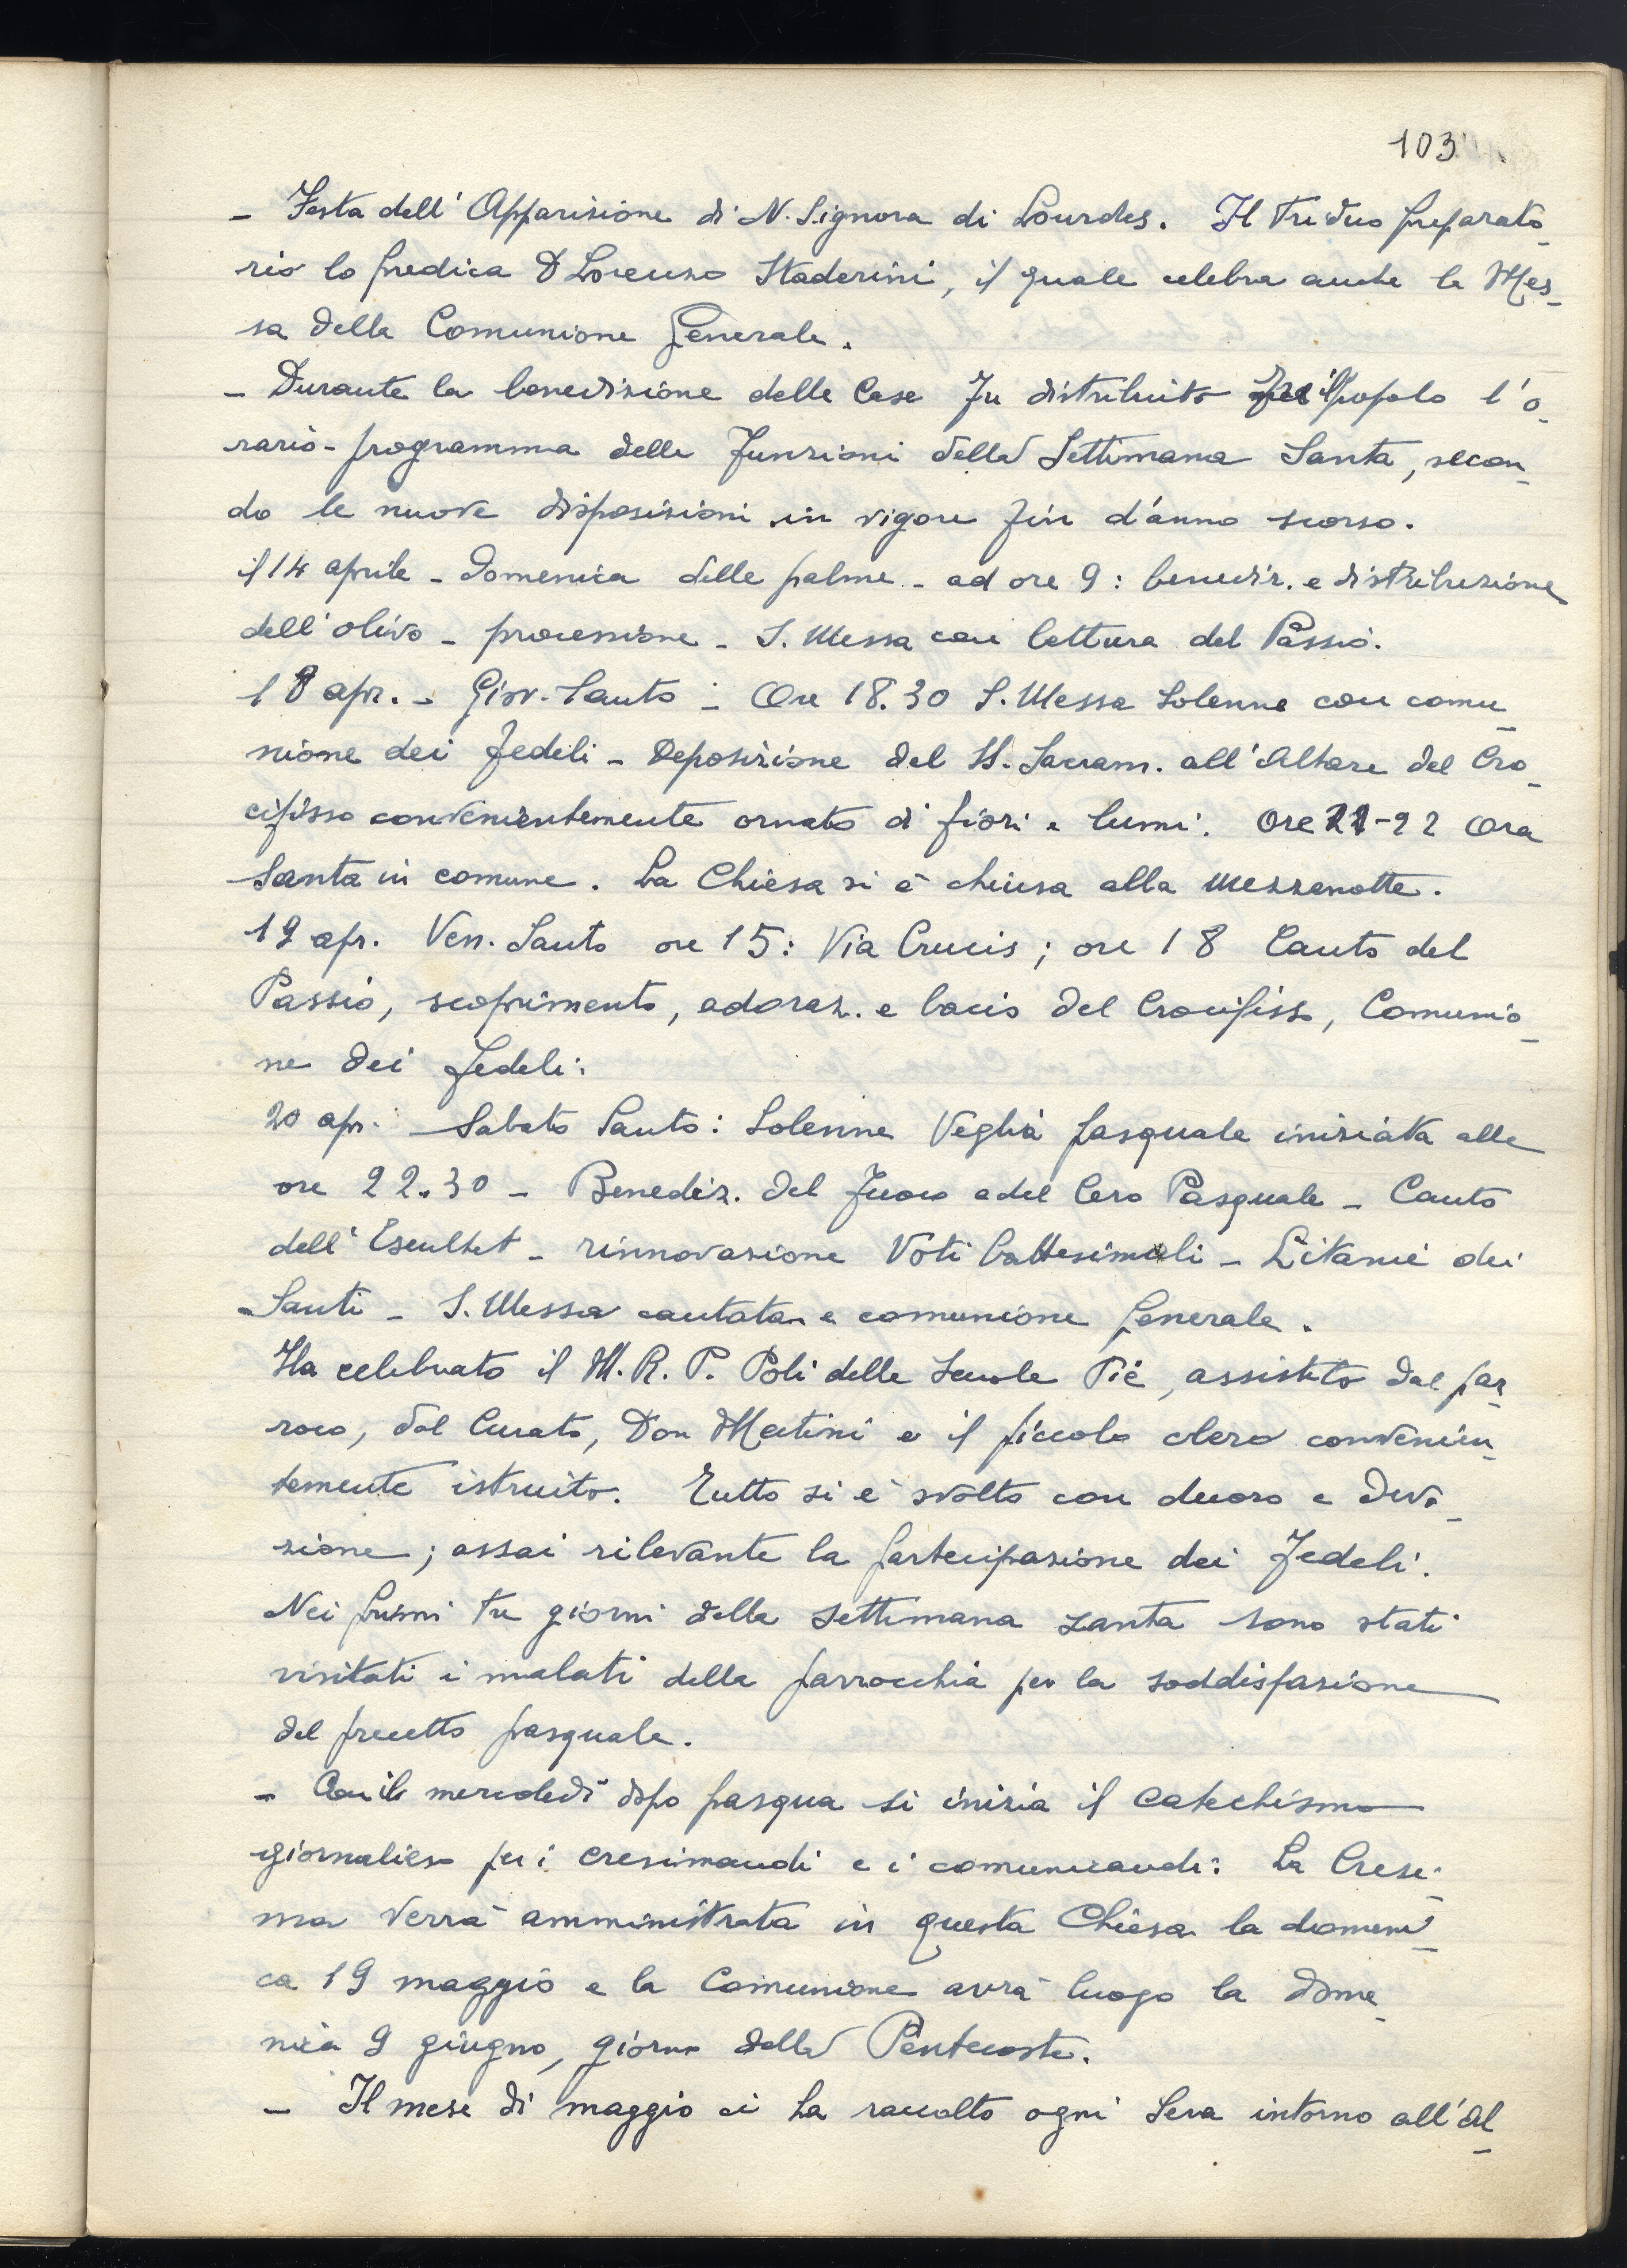 103
- Festa dell'Apparizione di N. Signora di Lourdes. Il Triduo preparato_
rio lo predica D Lorenzo Staderini, il quale celebra anche la Mes_
sa della Comunione Generale.
- Durante la benedizione delle Case fu distribuito fra il popolo l'o_
rario-programma delle Funzioni della Settimana Santa, secon_
do le nuove disposizioni in vigore fin d'anno scorso.
il 14 aprile - Domenica delle palme - ad ore 9: benediz. e distribuzione
dell'olivo - processione - S. Messa con lettura del Passio.
18 apr. - Giov. Santo - Ore 18.30 S. Messa Solenne con comu_
nione dei fedeli - Deposizione del SS. Sacram. all'Altare del Cro_
cifisso convenientemente ornato di fiori e lumi. Ore 21-22 Ora
Santa in comune. La Chiesa si è chiusa alla mezzanotte.
19 apr. Ven. Santo ore 15: Via Crucis; ore 18 Canto del
Passio, scoprimento, adoraz. e bacio del Crocifisso, Comunio_
ne dei fedeli:
20 apr. Sabato Santo: Solenne Veglia pasquale iniziata alle
ore 22.30 - Benediz. del Fuoco e del Cero Pasquale - Canto
dell'Esultet - rinnovazione Voti battesimali - Litanie dei
Santi - S. Messa cantata e comunione generale.
Ha celebrato il M. R. P. Poli delle Scuole Pie, assistito dal par_
roco, dal Curato, Don Matini e il piccolo clero convenien_
temente istruito. Tutto si è svolto con decoro e devo_
zione; assai rilevante la partecipazione dei Fedeli.
Nei primi tre giorni della settimana santa sono stati
visitati i malati della parrocchia per la soddisfazione
del precetto pasquale.
- Con il mercoledì dopo pasqua si inizia il catechismo
giornaliero per i cresimandi e i comunicandi: La Cresi_
ma verrà amministrata in questa Chiesa la domeni_
ca 19 maggio e la Comunione avrà luogo la dome_
nica 9 giugno, giorno della Pentecoste.
- Il mese di maggio ci ha raccolto ogni sera intorno all'Al_